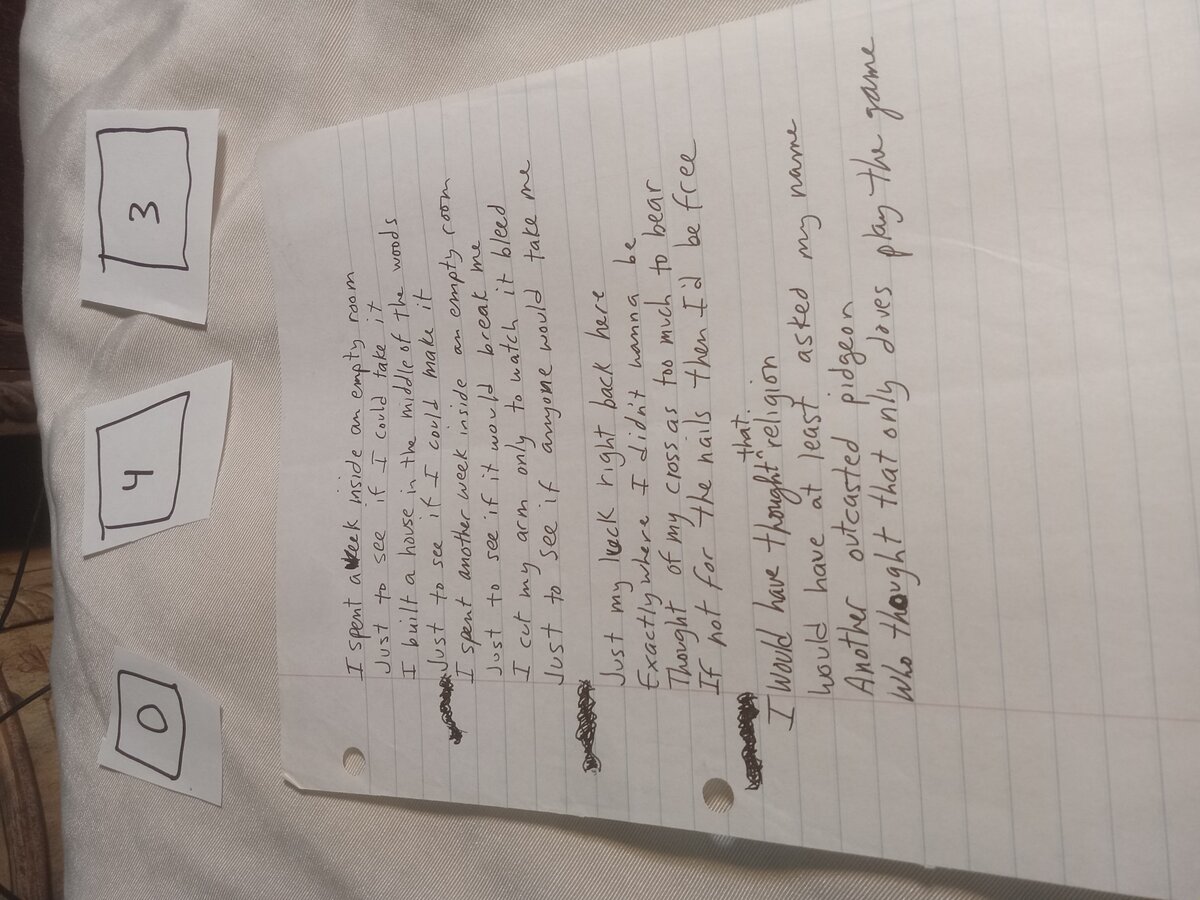 0
4
3
I spent a week inside an empty room
Just to see if I could take it
I built a house in the middle of the woods
Just to see if I could make it
I spent another week inside an empty room
Just to see if it would break me
I cut my arm only to watch it bleed
Just to see if anyone would take me
Just my luck right back here
Exactly where I didn't wanna be
Thought of my cross as too much to bear
If not for the nails then I'd be free
I would have thought that religion
would have at least asked my name
Another outcasted pidgeon
Who thought that only doves play the game